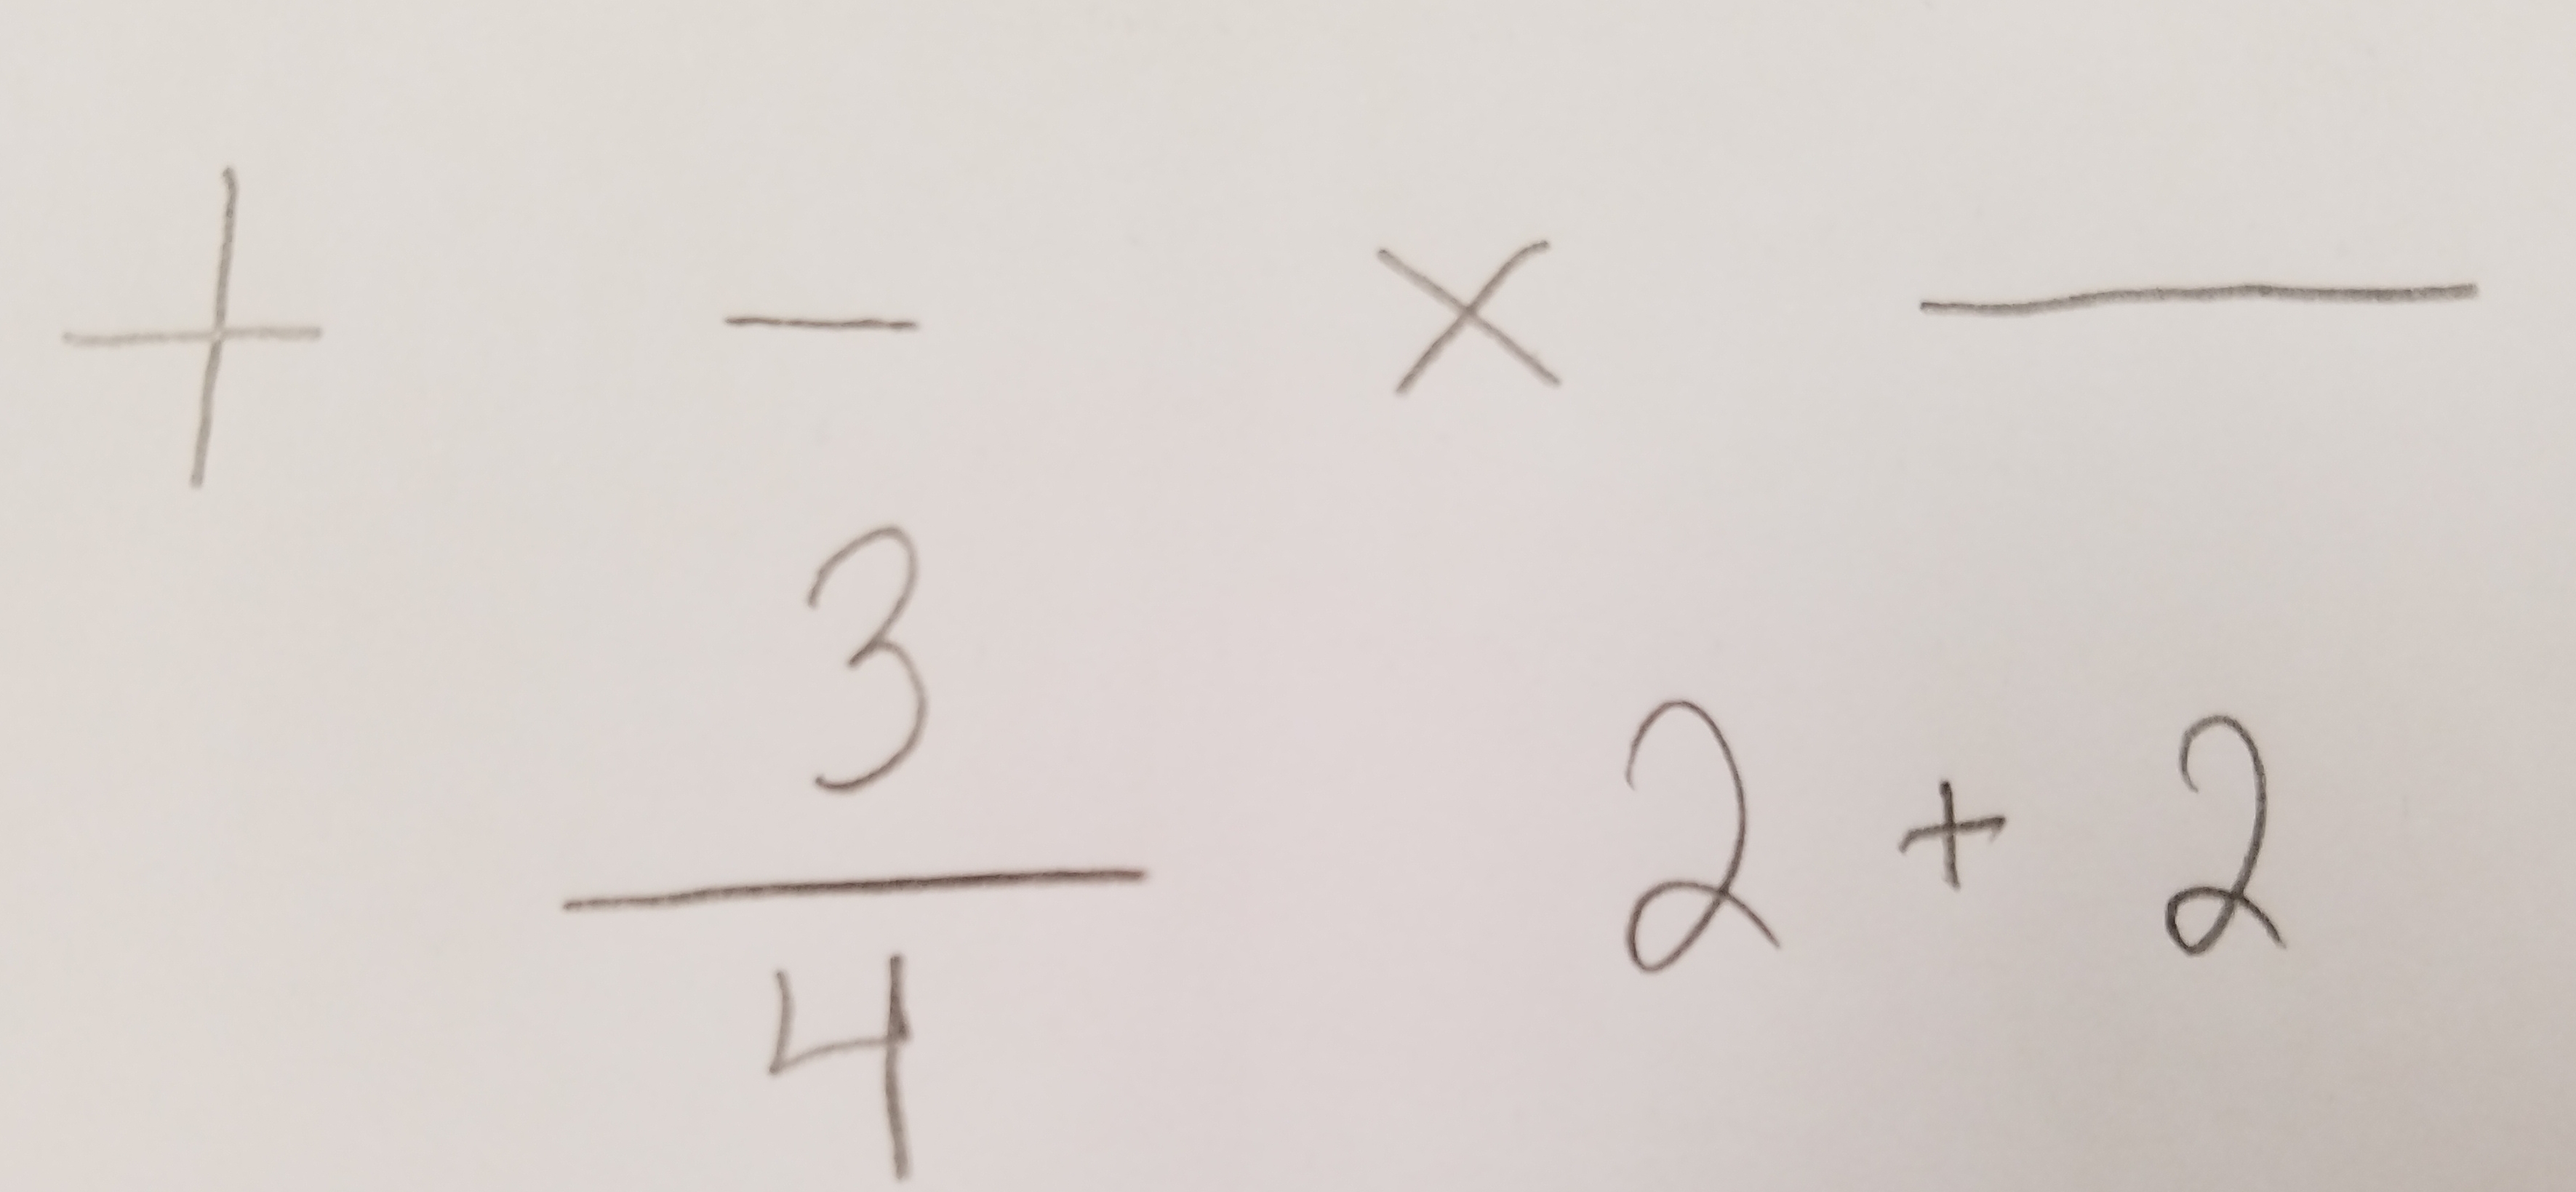 + - × —
3/4 2 + 2